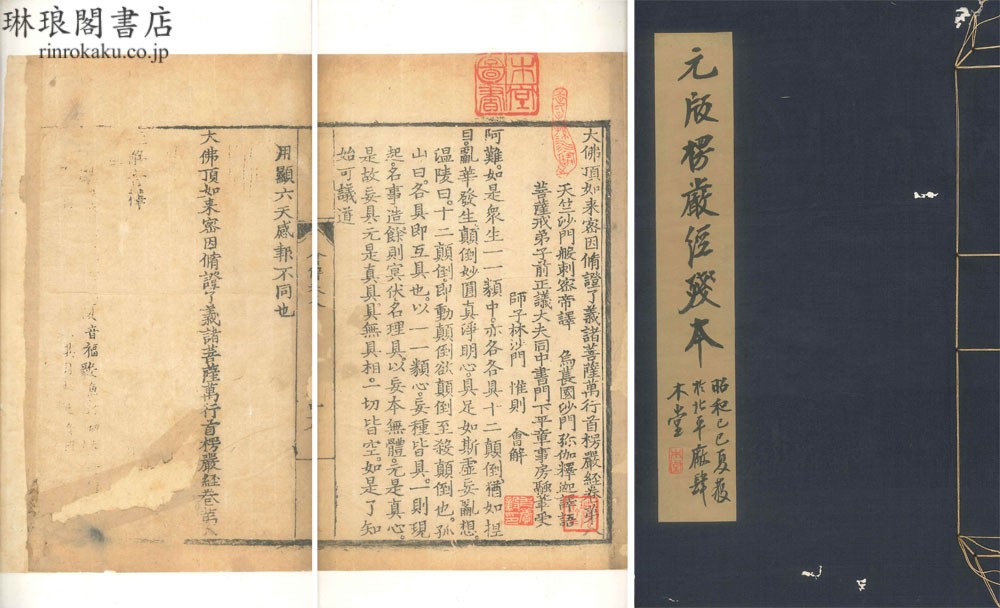 琳琅閣書店
rinrokaku.co.jp
元版楞嚴經殘本
昭和己巳夏獲
於北平廠肆
木堂
木堂圖書
大佛頂如来密因脩證了義諸菩薩萬行首楞嚴經卷第八
天竺沙門般刺密帝譯 烏萇國沙門弥伽釋迦譯語
菩薩戒弟子前正議大夫同中書門下平章事房融筆受
師子林沙門 惟則 會解
阿難。如是衆生一一類中。亦各各具十二顛倒。猶如捏
目。亂華發生。顛倒妙圓真淨明心。具足如斯虛妄亂想。
温陵曰。十二顛倒即動顛倒欲顛倒至殺顛倒也。孤
山曰。各具即互具也。以一一類心。妄種皆具。一則現
起。名事造餘則冥伏名理具。以妄本無體。元是真心。
是故妄具元是真具。具無具相。一切皆空。如是了知
始可議道
用顯六天感報不同也
大佛頂如来密因脩證了義諸菩薩萬行首楞嚴經卷第八